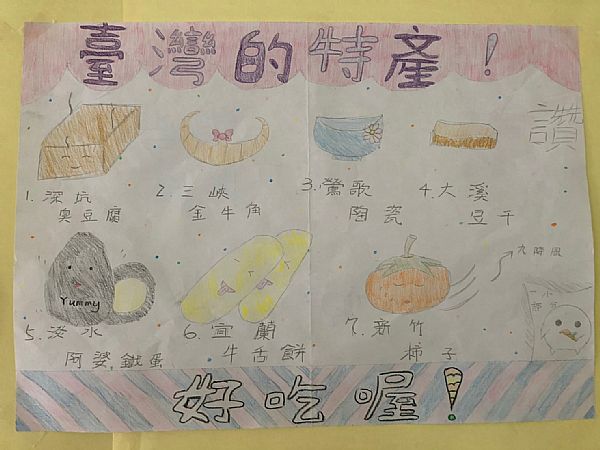 臺灣的特產！
讚
1. 深坑
臭豆腐
2. 三峽
金牛角
3. 鶯歌
陶瓷
4. 大溪
豆干
Yummy
九降風
5. 淡水
阿婆鐵蛋
6. 宜蘭
牛舌餅
7. 新竹
柿子
好吃喔！